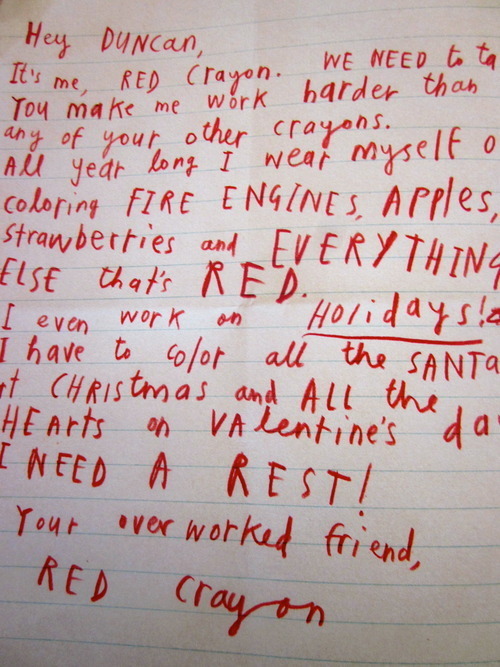 Hey DUNCAN,
It's me, RED Crayon. WE NEED to ta
You make me work harder than
any of your other crayons.
All year long I wear myself o
coloring FIRE ENGINES, APPles,
strawberries and EVERYTHING
ELSE that's RED.
I even work on Holidays!
I have to color all the SANTA
t CHRIStmas and ALL the
HEArts on VAlentine's da
I NEED A REST!
Your overworked friend,
RED Crayon